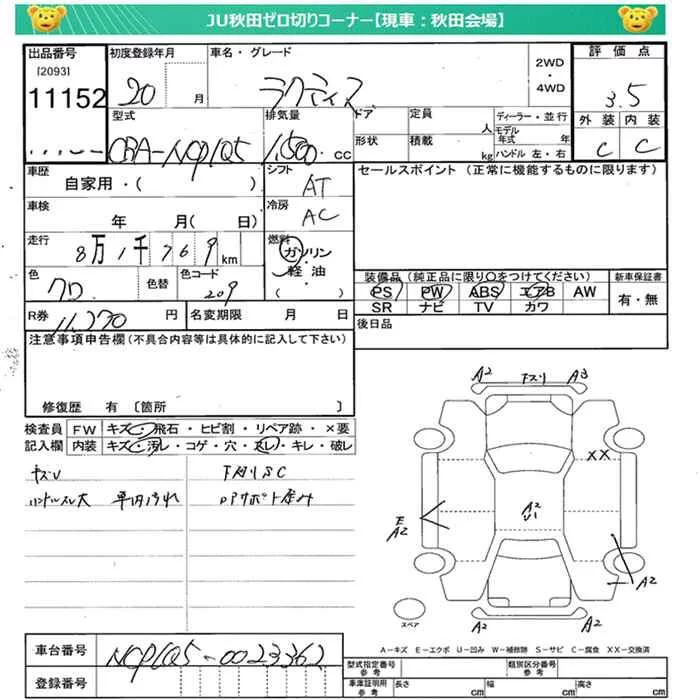 JU秋田ゼロ切りコーナー【現車：秋田会場】
出品番号 初度登録年月 車名・グレード 2WD・4WD 評価点
[2093]
11152 20 月 ラクティス 3.5
型式 排気量 ドア 定員 人 ディーラー・並行 外装 内装
CBA-NCP105 1,500 cc 形状 積載 kg モデル年式 年 ハンドル 左・右 C C
車歴 自家用・( ) シフト AT セールスポイント（正常に機能するものに限ります）
車検 年 月( 日) 冷房 AC
走行 8万1千769km 燃料 ガソリン・軽油・( )
色 クロ 色替 色コード 209
装備品（純正品に限り○をつけてください） 新車保証書
PS PW ABS エアB AW 有・無
SR ナビ TV カワ
R券 11,270 円 名変期限 月 日 後日品
注意事項申告欄(不具合内容等は具体的に記入して下さい)
修復歴 有 〔箇所 〕
検査員 FW キズ・飛石・ヒビ割・リペア跡・×要
記入欄 内装 キズ・汚レ・コゲ・穴・スレ・キレ・破レ
キズU 下廻りSC
ハンドルスレ大 車内汚れ
A2 下スリ A3
XX
A2
U1
E
A2
A2
A2 A2
スペア
A－キズ E－エクボ U－凹み W－補修跡 S－サビ C－腐食 XX－交換済
車台番号 NCP105-0023362
型式指定番号 参考 類別区分番号 参考
登録番号 車庫証明用 参考 長さ cm 幅 cm 高さ cm